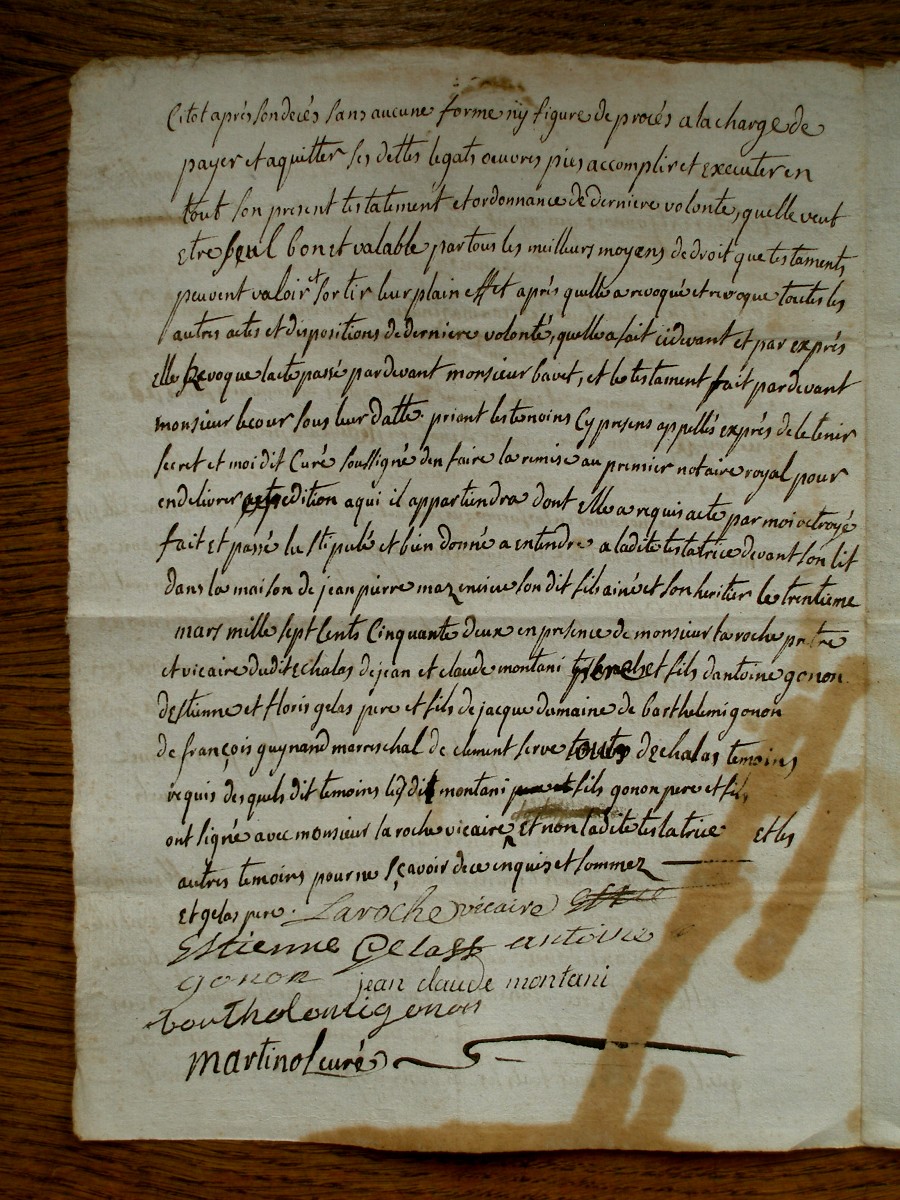 Citot après son decés sans aucune forme ny figure de procés a la charge de
payer et aquitter ses dettes legats oeuvres pies accomplir et executer en
tout son present testatement et ordonnance de derniere volonte, quelle veut
etre seul bon et valable par tous les meilleurs moyens de droit que testaments
peuvent valoir et sortir leur plain effet après quelle a revoqué et revoque toutes les
autres actes et dispositions de derniere volonté, quelle a fait cidevant et par exprés
elle revoque lacte passé pardevant monsieur bavet, et le testament fait pardevant
monsieur lecour sous leur datte. priant les temoins cy presens appellés exprés de le tenir
secret et moi dit Curé soussigné den faire la remise au premier notaire royal pour
en delivrer expedition a qui il appartiendra dont elle a requis acte par moi octroyé
fait et passé lu stipulé et bien donné a entendre a ladite testatrice devant son lit
dans la maison de jean pierre mazenieue son dit fils ainé et son heritier le trentieme
mars mille sept cents Cinquante deux en presence de monsieur la roche pretre
et vicaire dudit echalas de jean et claude montani et fils dantoine gonon
destienne et floris gelas pere et fils de jacque damaine de barthelemi gonon
de françois guynand mareschal de clement serve touts dechalas temoins
requis desquels dit temoins lesdit montani fils gonon pere et fils
ont signé avec monsieur la roche vicaire et non ladite testatrice et les
autres temoins pour ne sçavoir de ce enquis et sommez
et gelas pere. Laroche vicaire
Estienne Gelass antoine
gonon jean claude montani
bartholomi gonon
martinol curé